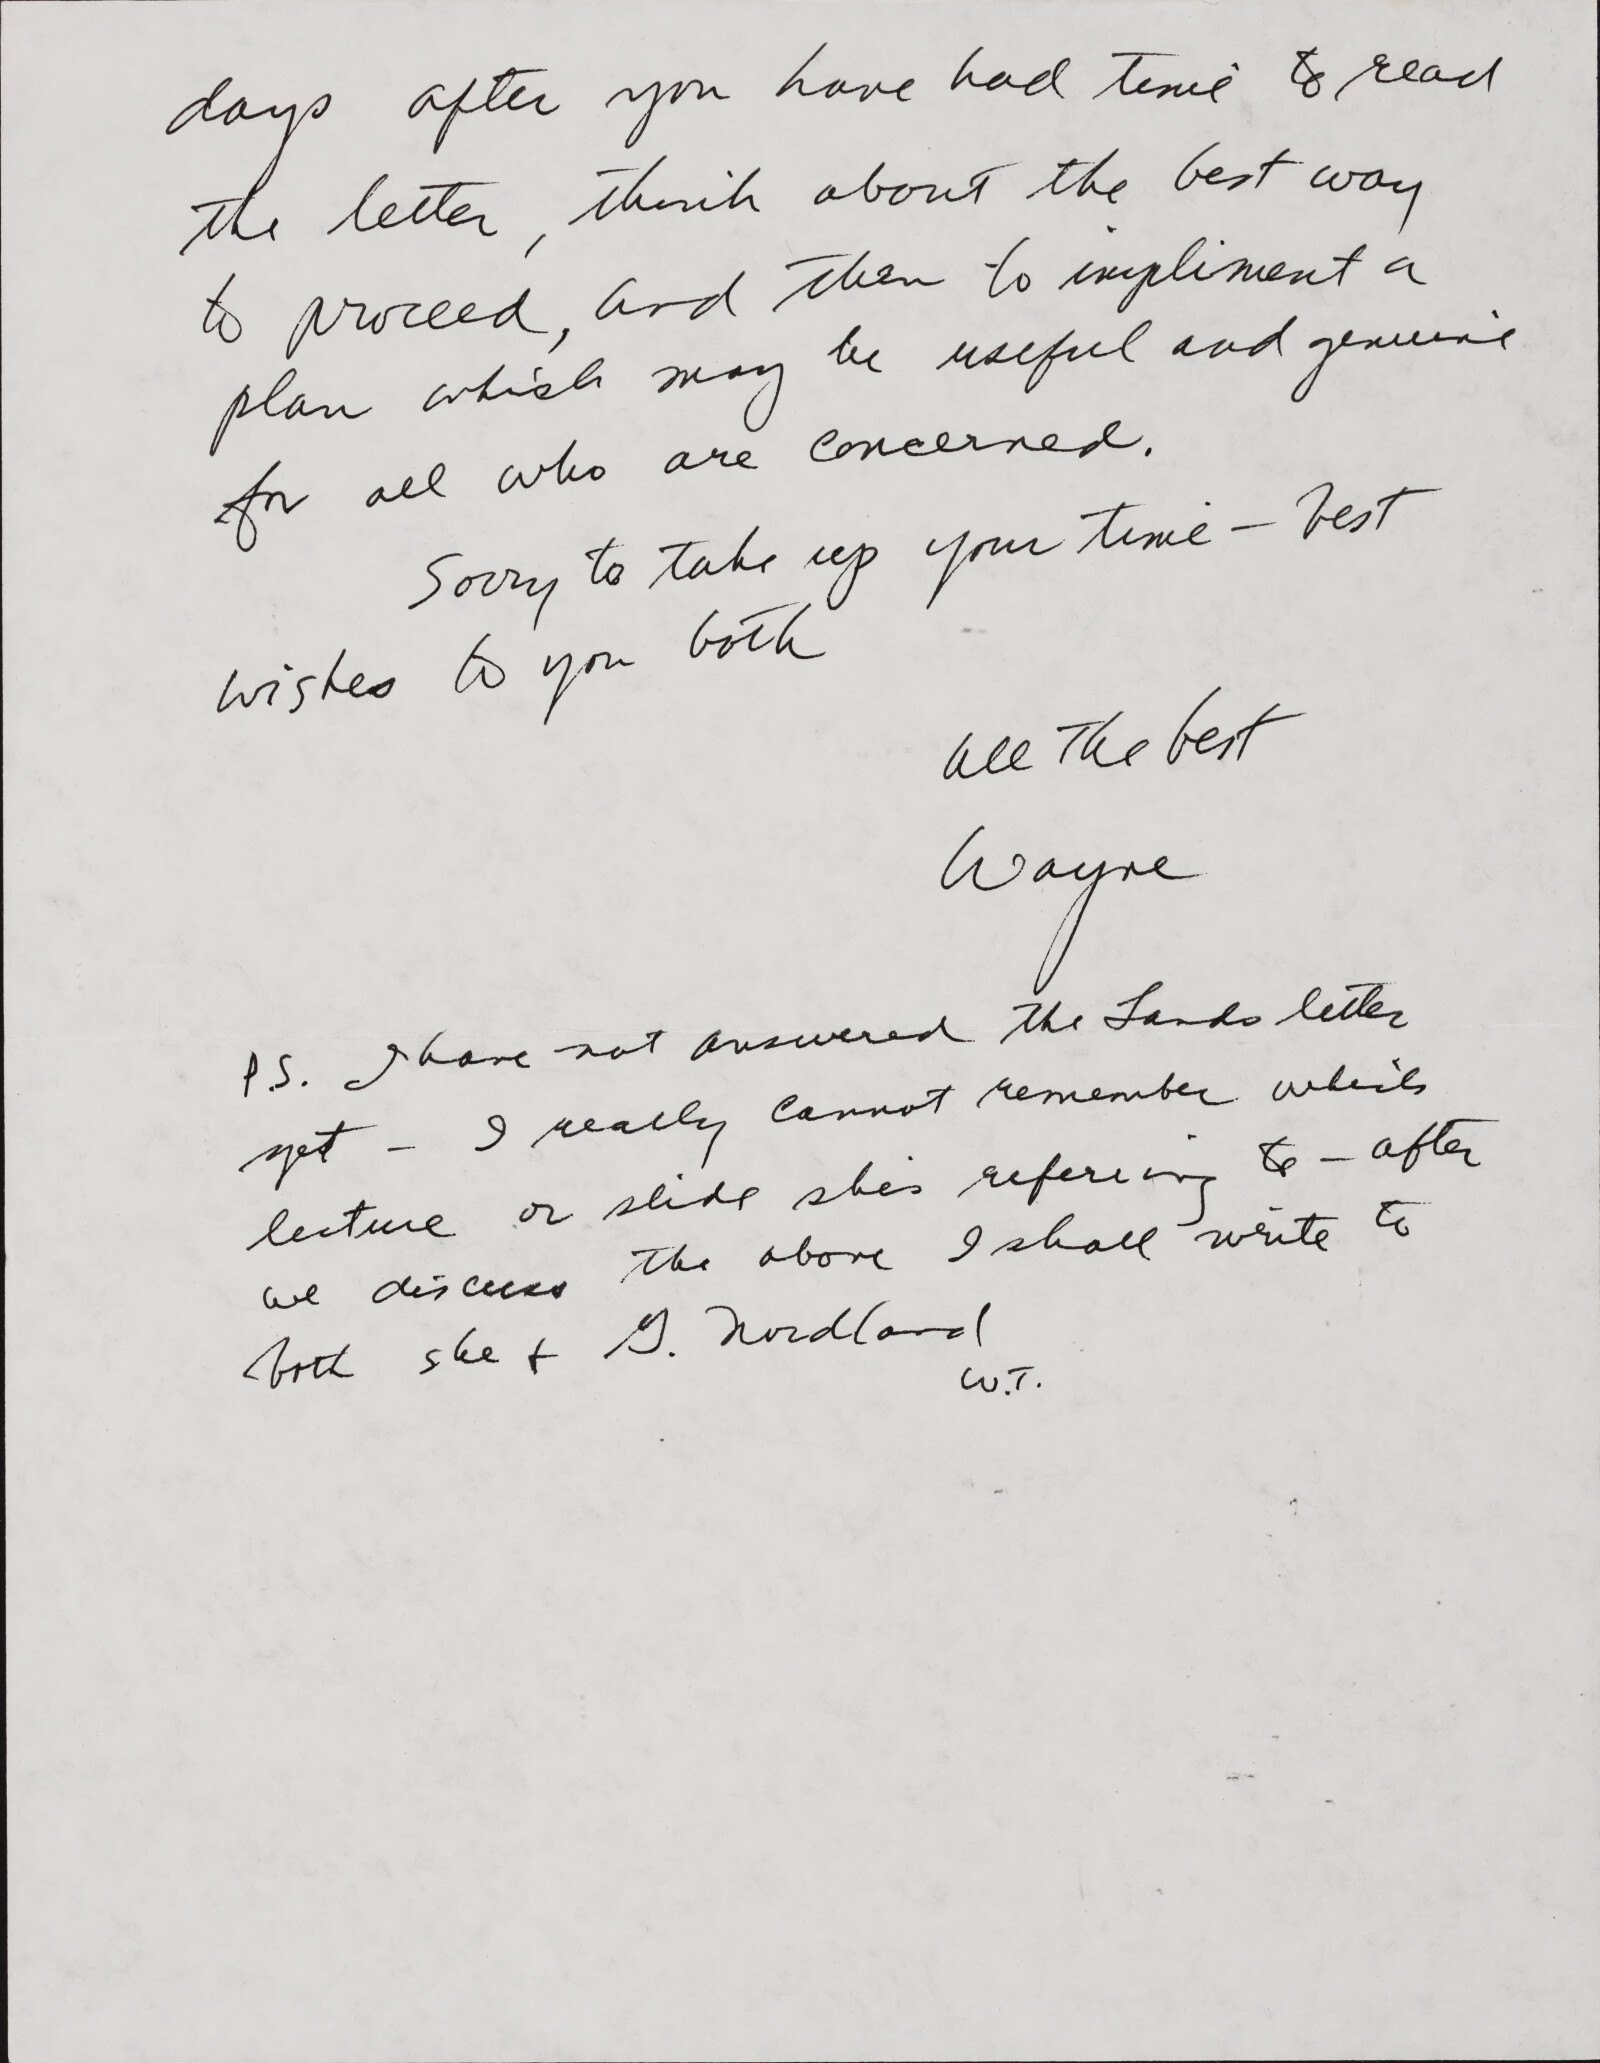 days after you have had time to read
the letter, think about the best way
to proceed, and then to impliment a
plan which may be useful and genuine
for all who are concerned.
Sorry to take up your time – best
wishes to you both
all the best
Wayne
P.S. I have not answered the Lands letter
yet – I really cannot remember which
lecture or slide she's refereing to – after
we discuss the above I shall write to
both she + G. Nordland
W.T.